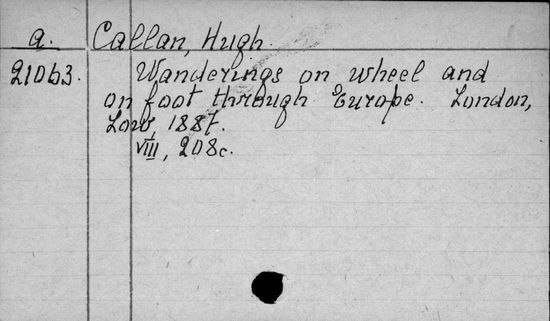 a. Callan, Hugh.
21063. Wanderings on wheel and
on foot through Europe. London,
Low, 1887.
VIII, 208c.